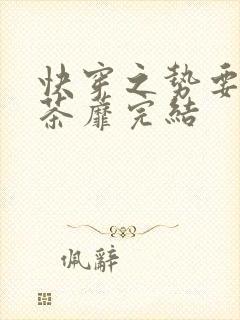 快穿之势要
荼蘼完結
佩辭